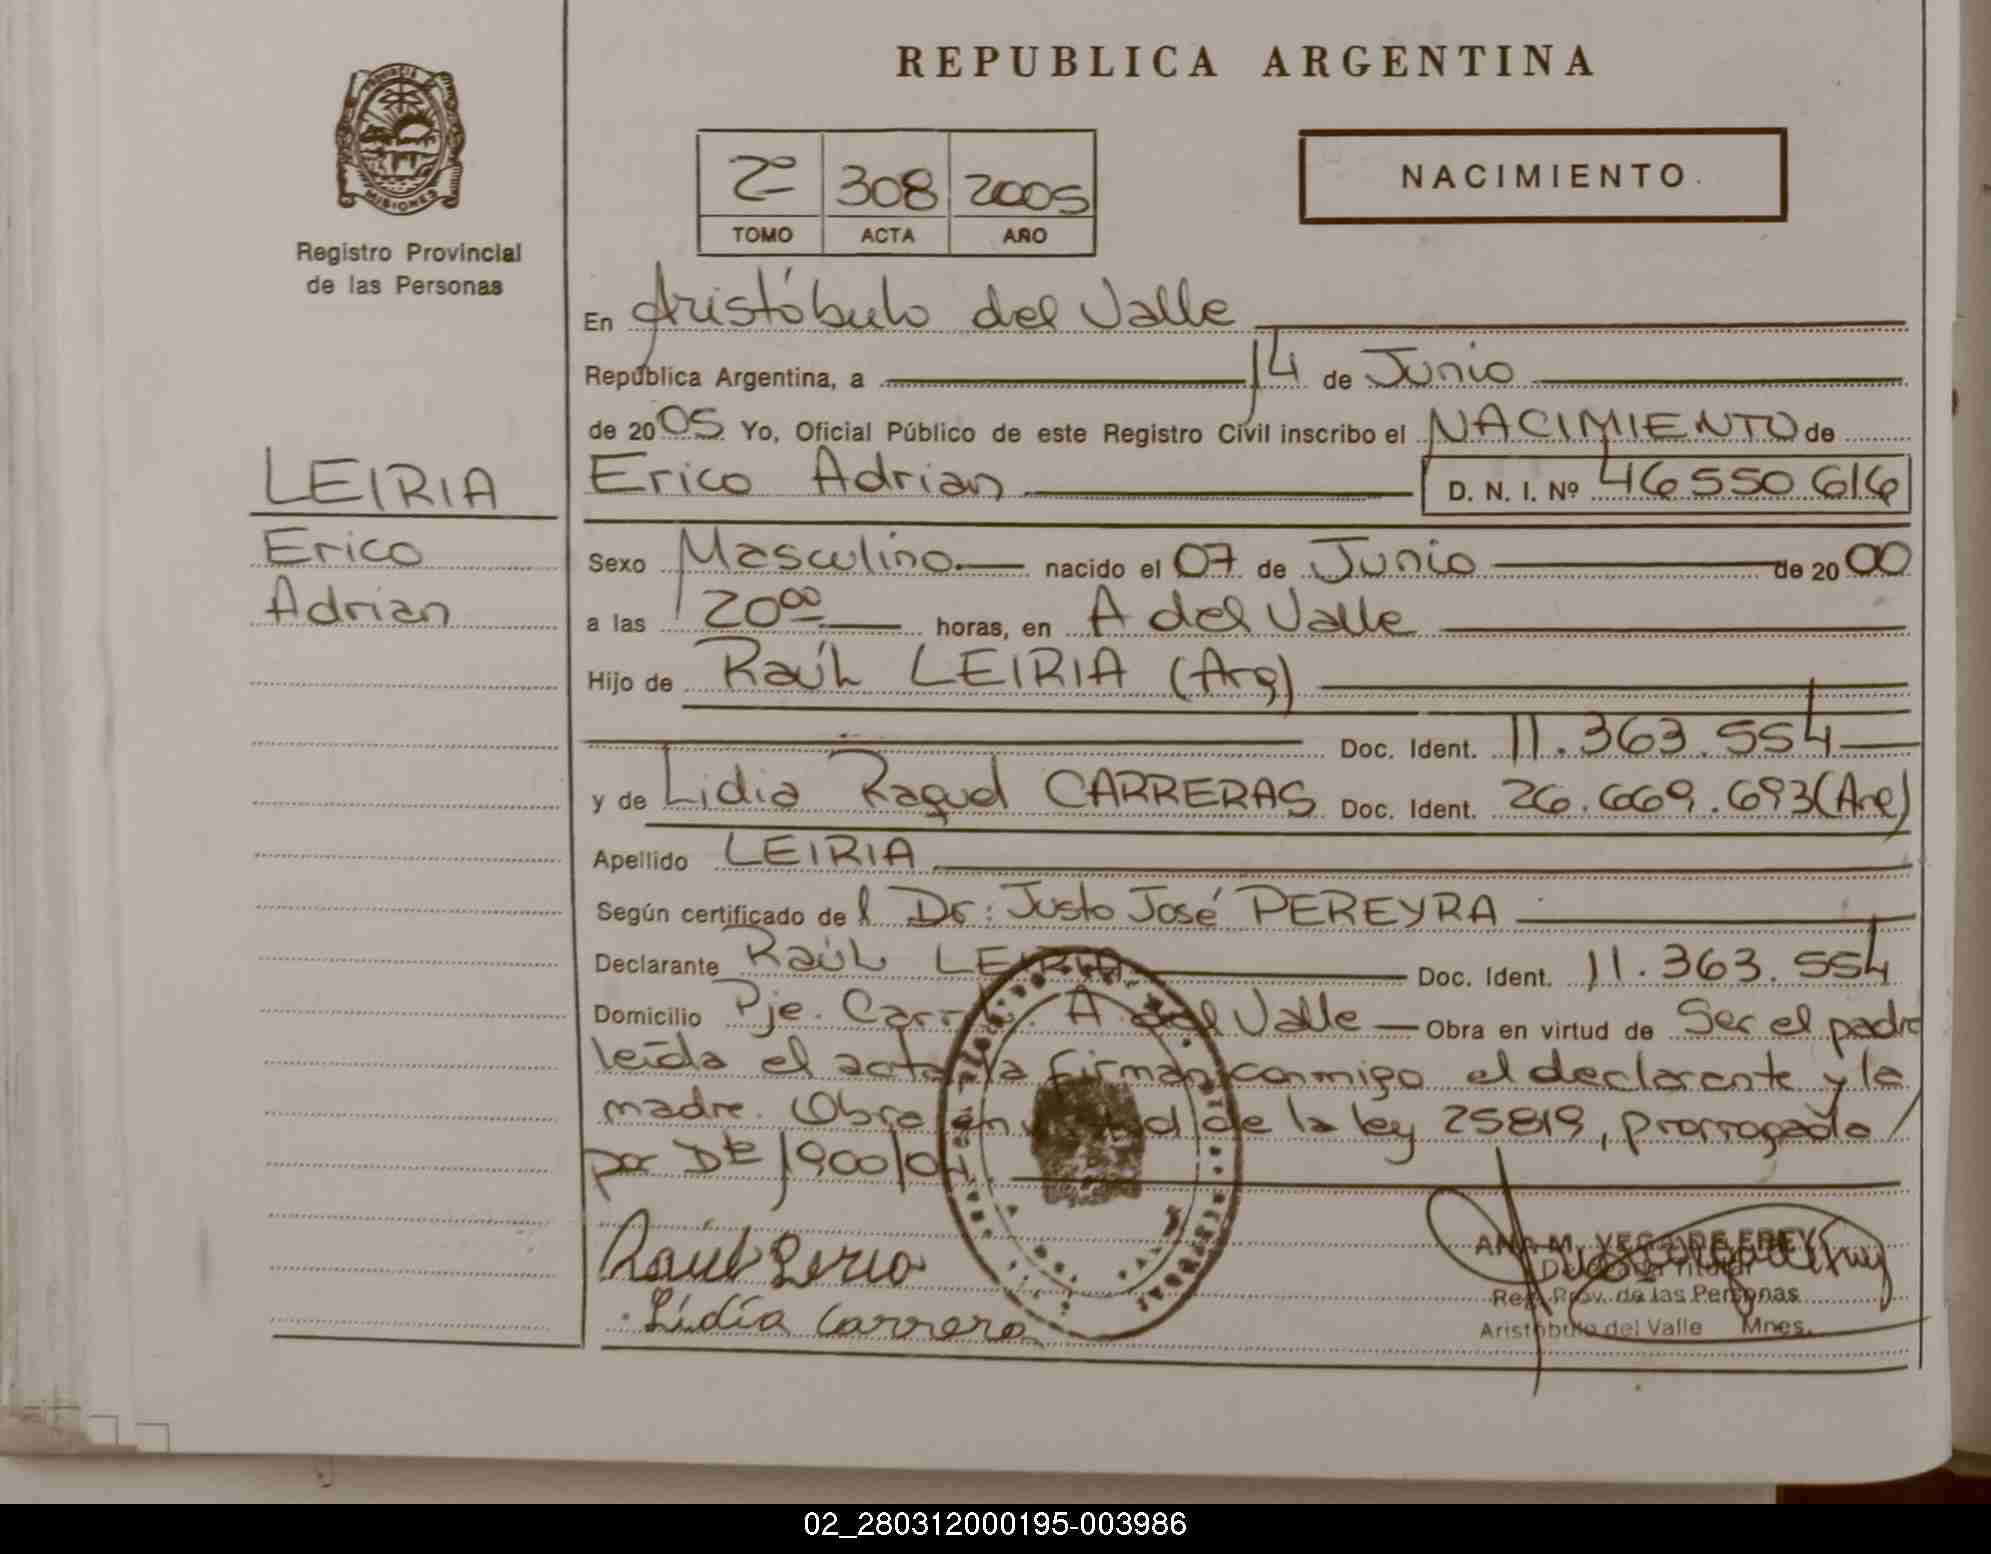 REPUBLICA ARGENTINA
PROVINCIA DE
MISIONES
Registro Provincial
de las Personas
2º 308 2005
TOMO ACTA AÑO
NACIMIENTO
En Aristóbulo del Valle
República Argentina, a 14 de Junio
de 2005 Yo, Oficial Público de este Registro Civil inscribo el NACIMIENTO de
LEIRIA
Erico
Adrian
Erico Adrian D. N. I. Nº 46550616
Sexo Masculino nacido el 07 de Junio de 2000
a las 20ºº horas, en A del Valle
Hijo de Raúl LEIRIA (Arg)
Doc. Ident. 11.363.554
y de Lidia Raquel CARRERAS Doc. Ident. 26.669.693 (Arg)
Apellido LEIRIA
Según certificado del Dr: Justo José PEREYRA
Declarante Raúl LEIRIA Doc. Ident. 11.363.554
Domicilio Pje. A del Valle Obra en virtud de Ser el padre
leída el acta la firman conmigo el declarante y la
madre. Obra en virtud de la ley 25819, prorrogada
por 1900/04
Raúl Leiria
Lidia Carrera
ANA M. VEGA DE FREY
Delegada Titular
Reg. Prov. de las Personas
Aristóbulo del Valle Mnes.
02_280312000195-003986